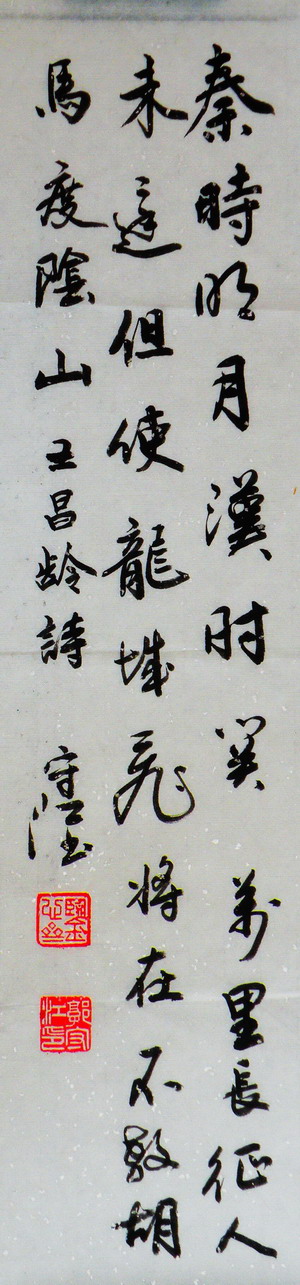 秦時明月漢时関萬里長征人
未還但使龍城飛將在不教胡
馬度陰山王昌齡詩